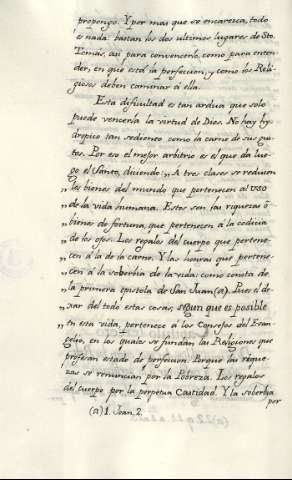 propongo. Y por mas que se encarezca, todo
es nada: bastan los dos ultimos lugares de Sto.
Tomás, asi para convencerlo, como para enten-
der, en que está la perfeccion, y como los Reli-
giosos deben caminar á ella.
Esta dificultad es tan ardua que solo
puede vencerla la virtud de Dios. No hay hy-
dropico tan sediento como la carne de sus gus-
tos. Por eso el mejor arbitrio es el que da lue-
go el Santo, diciendo: „ A tres clases se reducen
„ los bienes del mundo que pertenecen al uso
„ de la vida humana. Estos son las riquezas ó
„ bienes de fortuna, que pertenecen á la codicia
„ de los ojos. Los regalos del cuerpo que pertene-
„ cen á la de la carne. Y las honras que pertene-
„ cen á la soberbia de la vida: como consta de
„ la primera epistola de San Juan (a). Pues el de-
„ xar del todo estas cosas, segun que es posible
„ en esta vida, pertenece á los Consejos del Evan-
„ gelio, en los quales se fundan las Religiones que
profesan estado de perfeccion. Porque las rique-
zas se renuncian por la Pobreza. Los regalos
del cuerpo por la perpetua Castidad. Y la soberbia
por
(a) 1. Joan. 2.